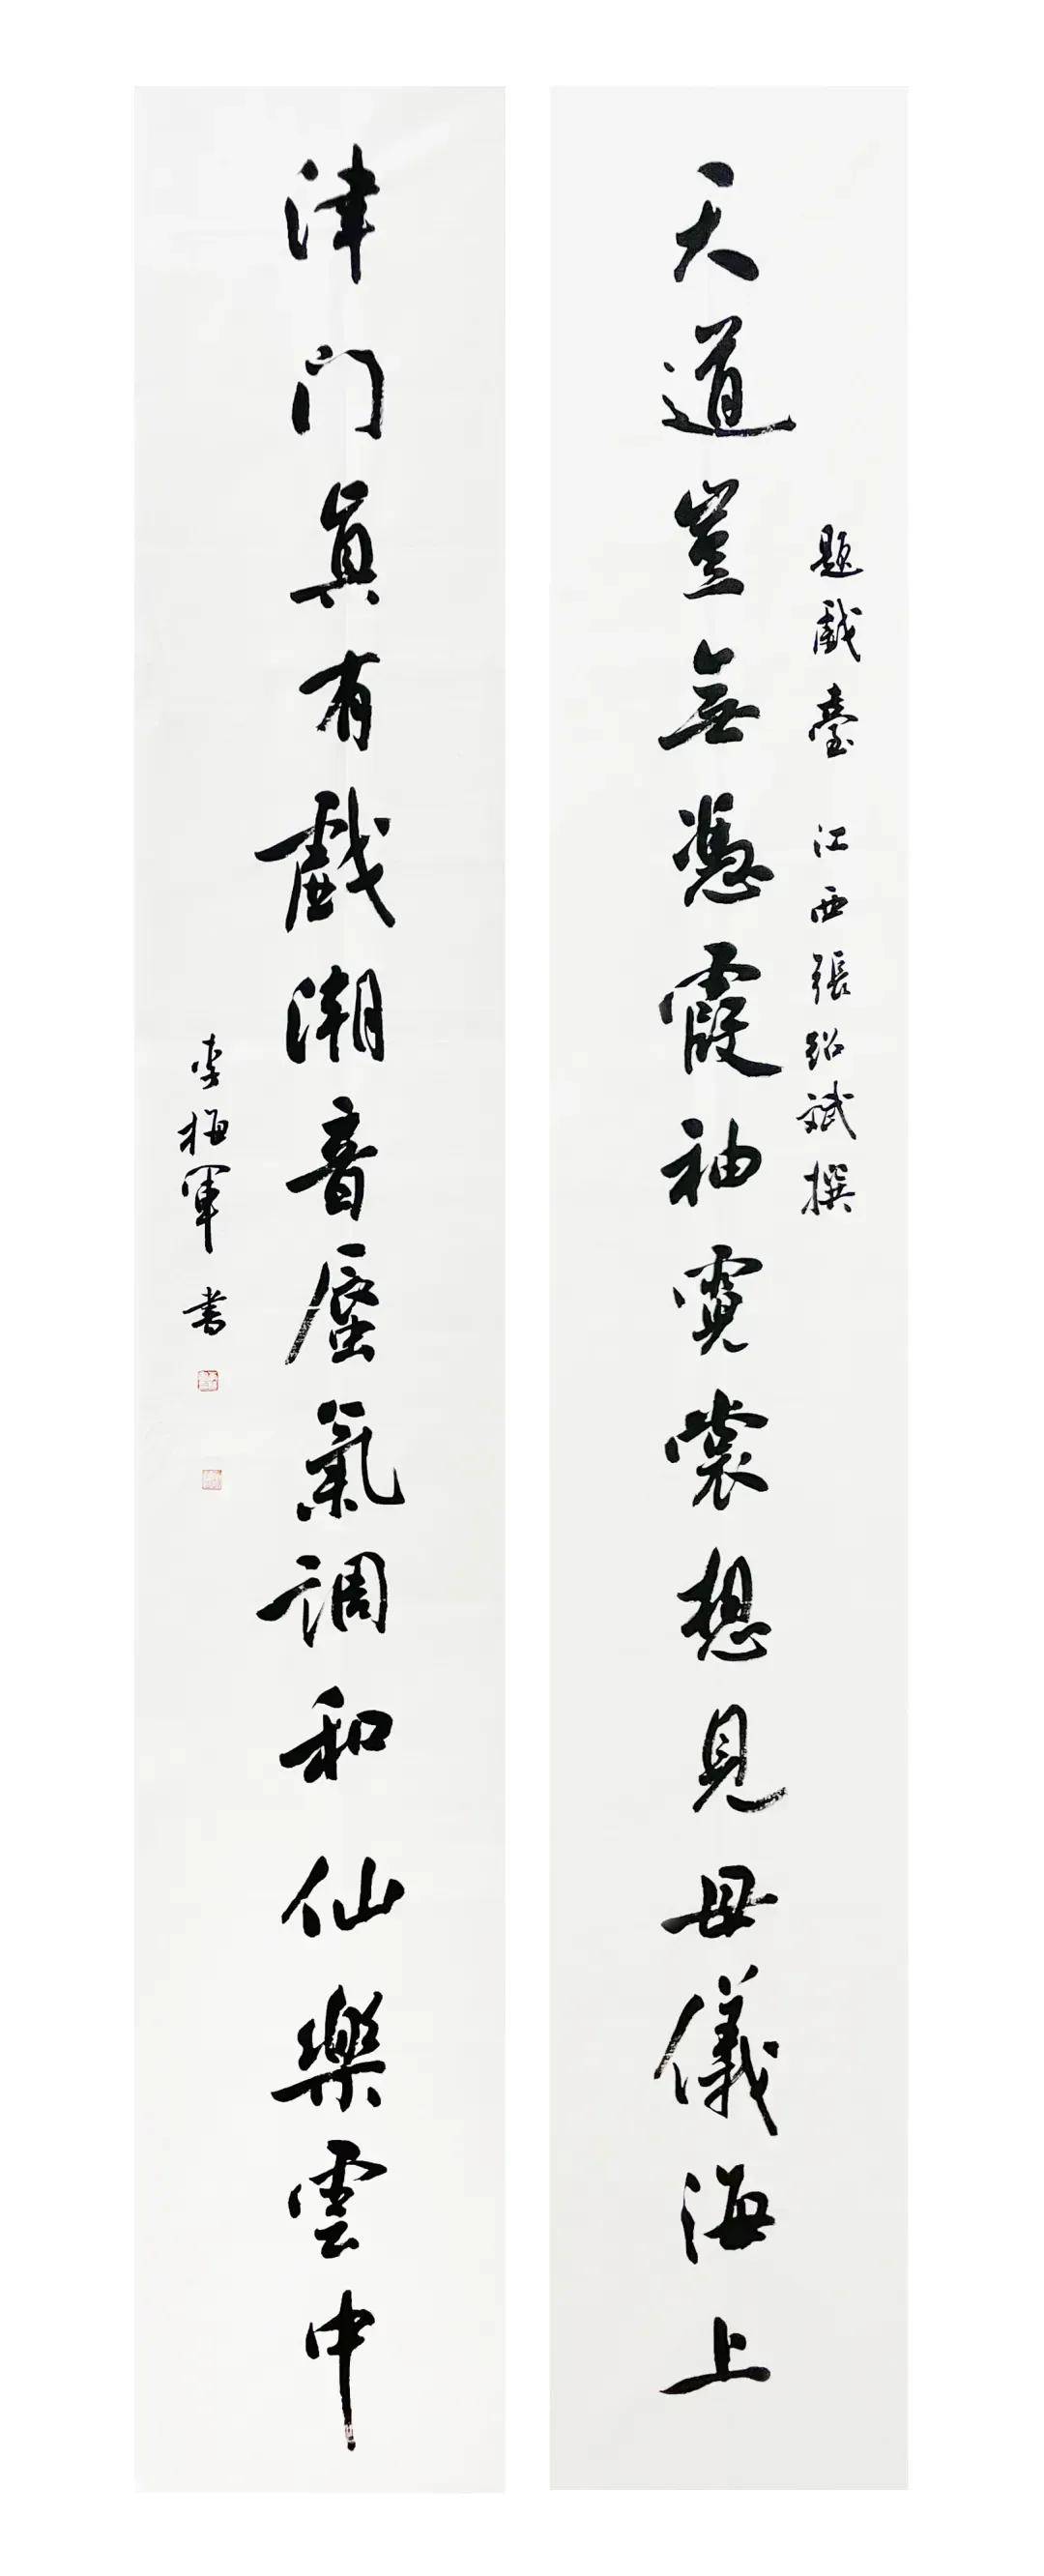 題戲臺 江西張紹斌撰
天道豈無憑霞袖霓裳想見母儀海上
津门真有戲潮音蜃氣调和仙樂雲中
李梅軍书